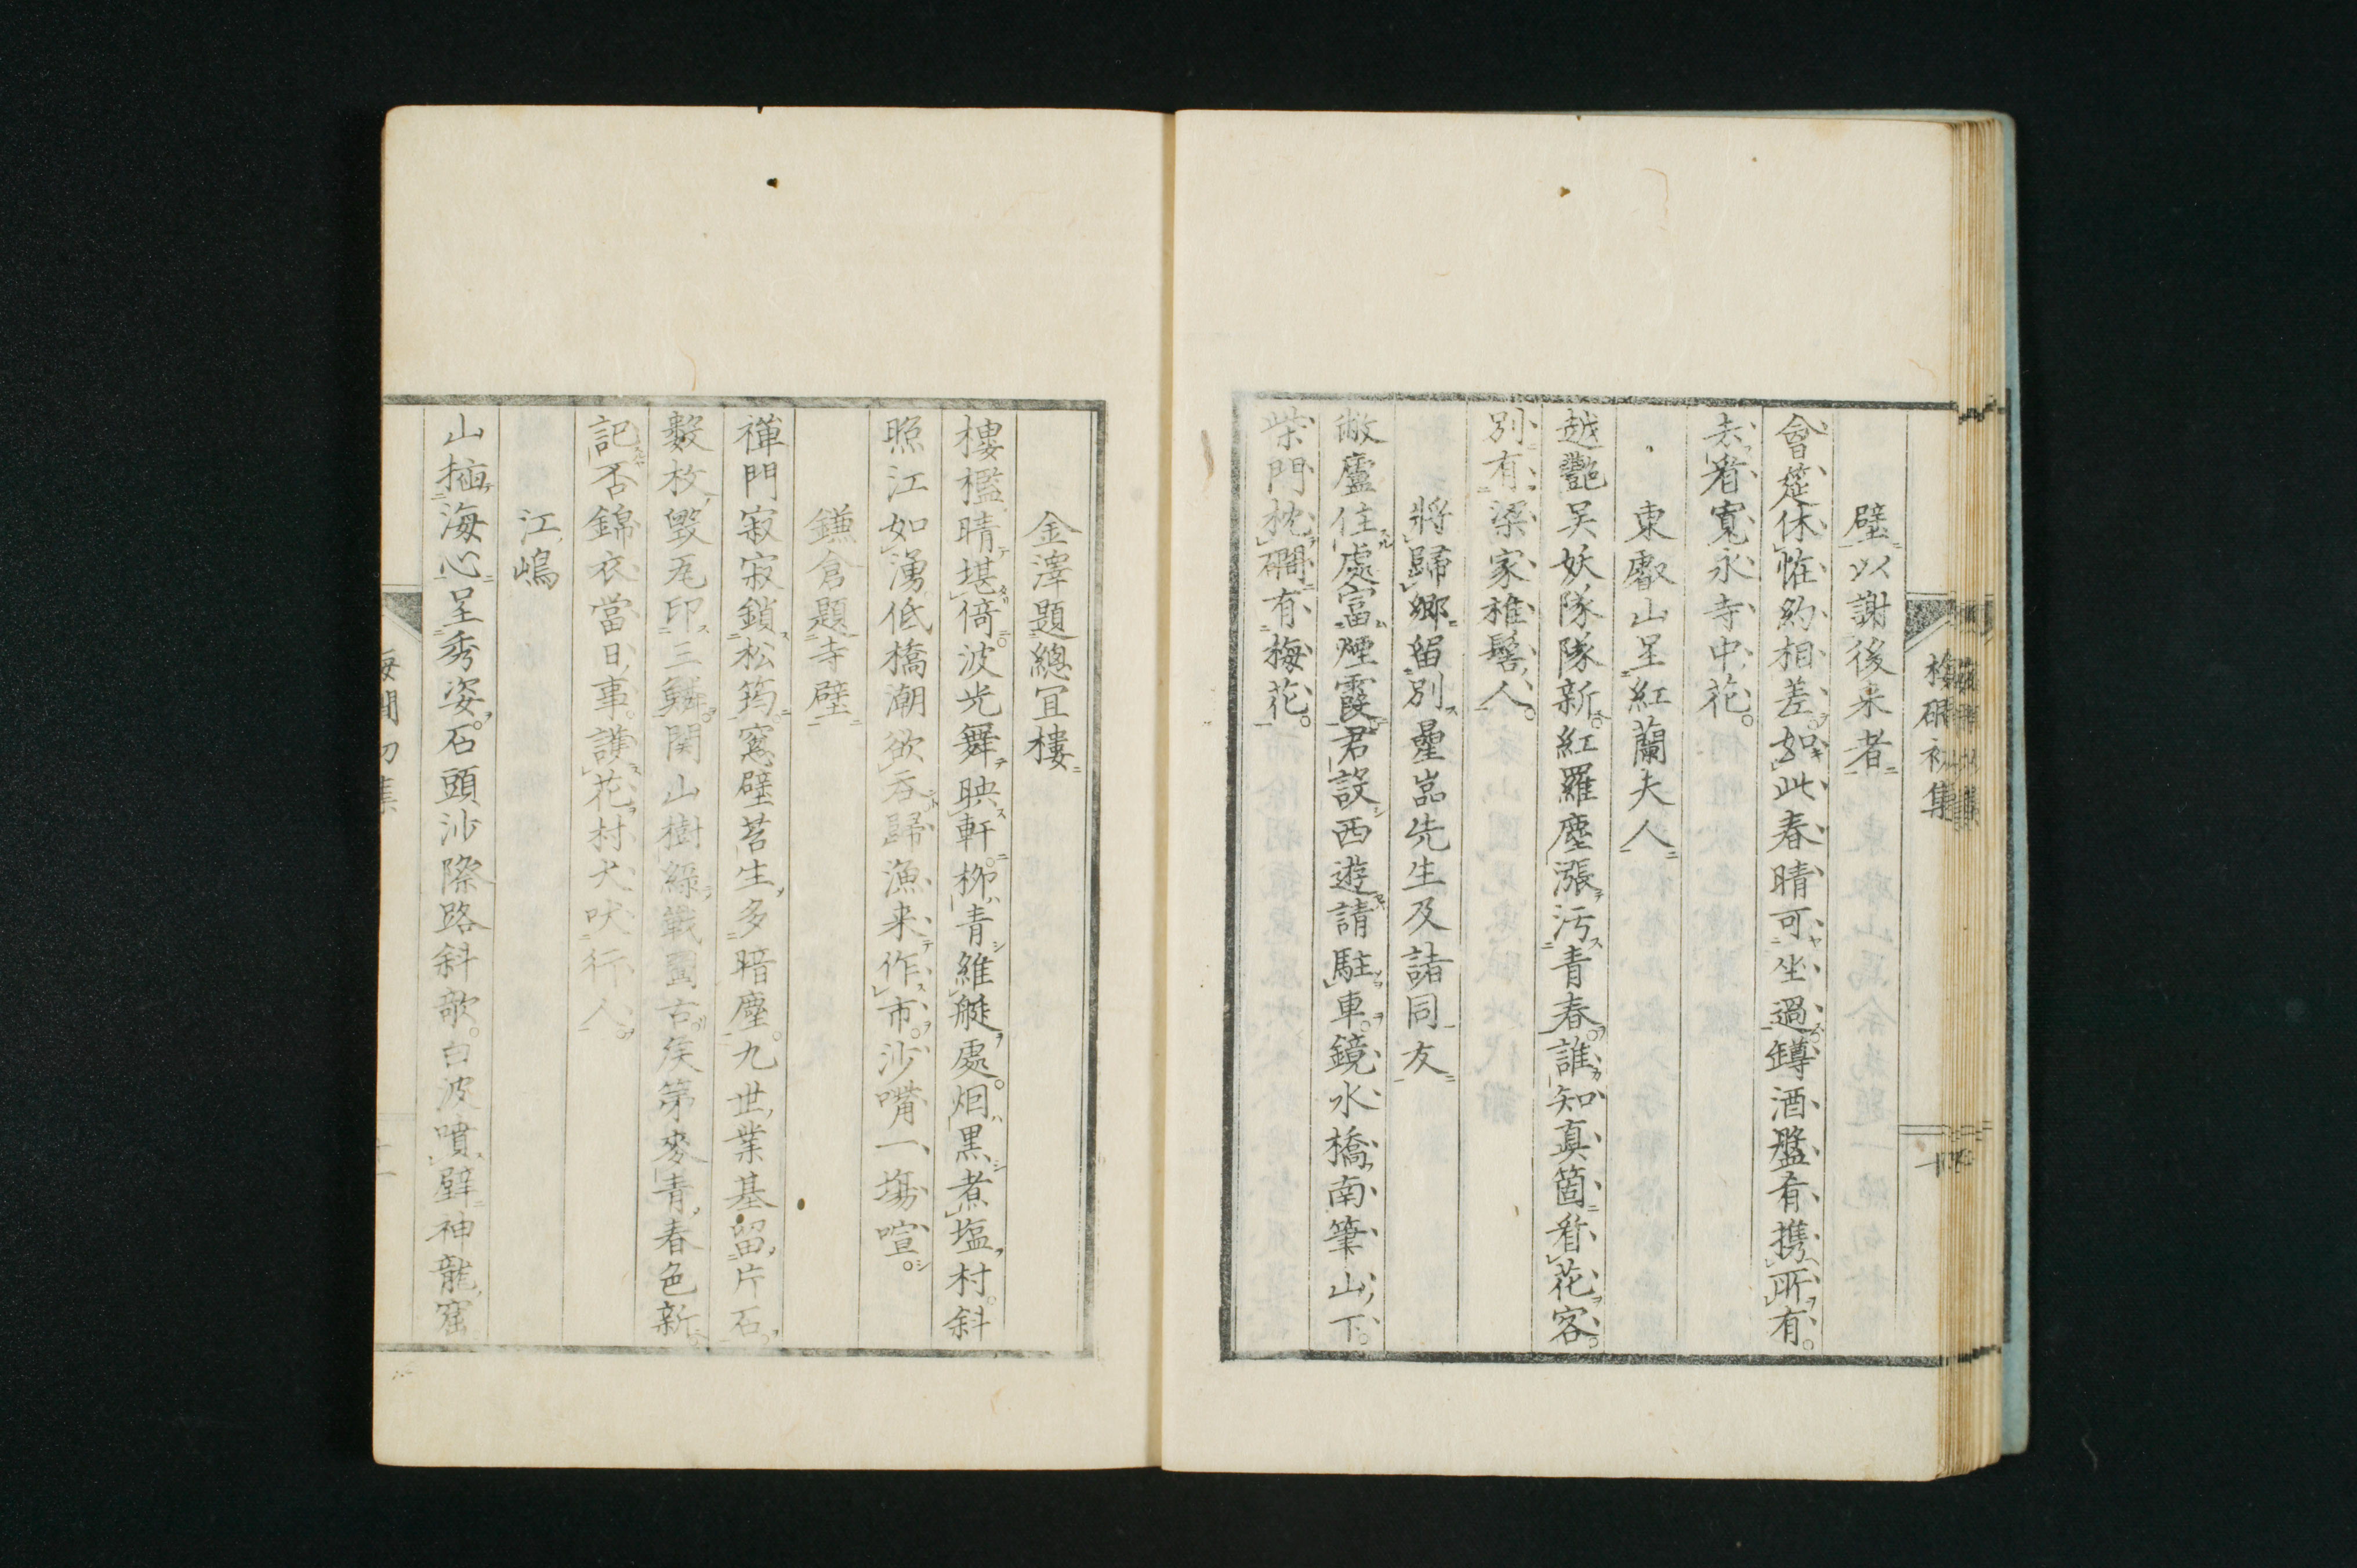 壁以謝後来者
會筵休恠約相差如此春晴可坐過罇酒盤肴携所有
去看寛永寺中花
東叡山呈紅蘭夫人
越艷吴妖隊隊新紅羅塵漲汚青春誰知真箇看花客
別有梁家椎髻人
將歸郷留別星嵓先生及諸同友
敝廬住處富煙霞君設西遊請駐車鏡水橋南筆山下
柴門枕磵有梅花
初集
十
金澤題總宜樓
樓檻晴堪倚波光舞映軒柳青維艇處烟黒煮塩村斜
照江如湧低橋潮欲呑歸漁来作市沙嘴一塲喧
鎌倉題寺壁
禪門寂寂鎖松筠窓壁苔生多暗塵九世業基留片石
數枚毀瓦印三鱗関山樹緑戰圖古侯第麥青春色新
記否錦衣當日事護花村犬吠行人
江嶋
山插海心呈秀姿石頭沙際路斜欹白波噴壁神龍窟